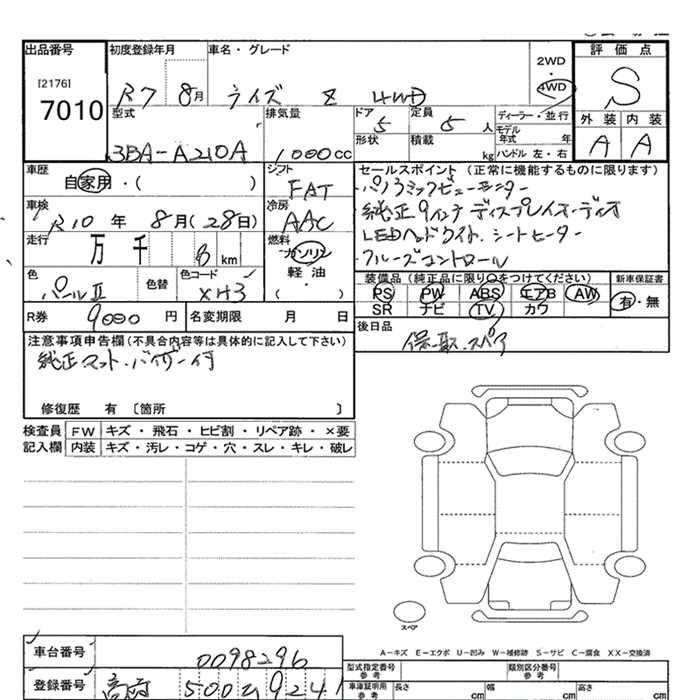 出品番号
[2176]
7010
初度登録年月
R7 8月
車名・グレード
ライズ Z 4WD
2WD
4WD
評価点
S
外装 内装
A A
型式
3BA-A210A
排気量
1000cc
ドア
5
形状
定員
5人
積載
kg
ディーラー・並行
モデル年式 年
ハンドル 左・右
車歴
自家用・( )
シフト
FAT
車検
R10年 8月(28日)
冷房
AAC
走行
万 千 8 km
燃料
ガソリン
軽油
・( )
色
パールⅡ
色替
色コード
XH3
R券
9000 円
名変期限 月 日
セールスポイント (正常に機能するものに限ります)
パノラミックビューモニター
純正9インチディスプレイオーディオ
LEDヘッドライト. シートヒーター
クルーズコントロール
装備品(純正品に限り○をつけてください)
PS PW ABS エアB AW
SR ナビ TV カワ
新車保証書
有・無
後日品
保.取.スペア
注意事項申告欄(不具合内容等は具体的に記入して下さい)
純正マット・バイザー付
修復歴 有 〔箇所 〕
検査員記入欄
FW キズ・飛石・ヒビ割・リペア跡・×要
内装 キズ・汚レ・コゲ・穴・スレ・キレ・破レ
スペア
A－キズ E－エクボ U－凹み W－補修跡 S－サビ C－腐食 XX－交換済
車台番号
0098296
登録番号
500 9241
型式指定番号
参考
類別区分番号
参考
車庫証明用
参考
長さ cm
幅 cm
高さ cm